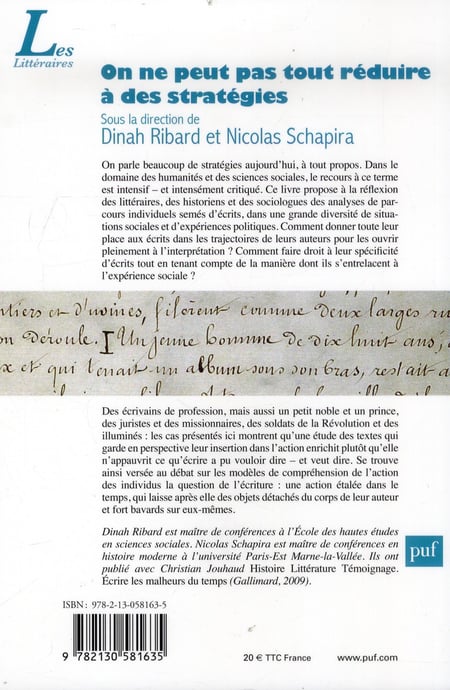 Les
Littéraires
On ne peut pas tout réduire
à des stratégies
Sous la direction de
Dinah Ribard et Nicolas Schapira
On parle beaucoup de stratégies aujourd'hui, à tout propos. Dans le
domaine des humanités et des sciences sociales, le recours à ce terme
est intensif – et intensément critiqué. Ce livre propose à la réflexion
des littéraires, des historiens et des sociologues des analyses de par-
cours individuels semés d'écrits, dans une grande diversité de situa-
tions sociales et d'expériences politiques. Comment donner toute leur
place aux écrits dans les trajectoires de leurs auteurs pour les ouvrir
pleinement à l'interprétation ? Comment faire droit à leur spécificité
d'écrits tout en tenant compte de la manière dont ils s'entrelacent à
l'expérience sociale ?
et d'usines, filèrent comme deux larges
déroule. Un jeune homme de dix huit ans,
et qui tenait un album sous son bras, restait
Des écrivains de profession, mais aussi un petit noble et un prince,
des juristes et des missionnaires, des soldats de la Révolution et des
illuminés : les cas présentés ici montrent qu'une étude des textes qui
garde en perspective leur insertion dans l'action enrichit plutôt qu'elle
n'appauvrit ce qu'écrire a pu vouloir dire – et veut dire. Se trouve
ainsi versée au débat sur les modèles de compréhension de l'action
des individus la question de l'écriture : une action étalée dans le
temps, qui laisse après elle des objets détachés du corps de leur auteur
et fort bavards sur eux-mêmes.
Dinah Ribard est maître de conférences à l'École des hautes études
en sciences sociales. Nicolas Schapira est maître de conférences en
histoire moderne à l'université Paris-Est Marne-la-Vallée. Ils ont
publié avec Christian Jouhaud Histoire Littérature Témoignage.
Écrire les malheurs du temps (Gallimard, 2009).
puf
ISBN : 978-2-13-058163-5
9 782130 581635
20 € TTC France
www.puf.com